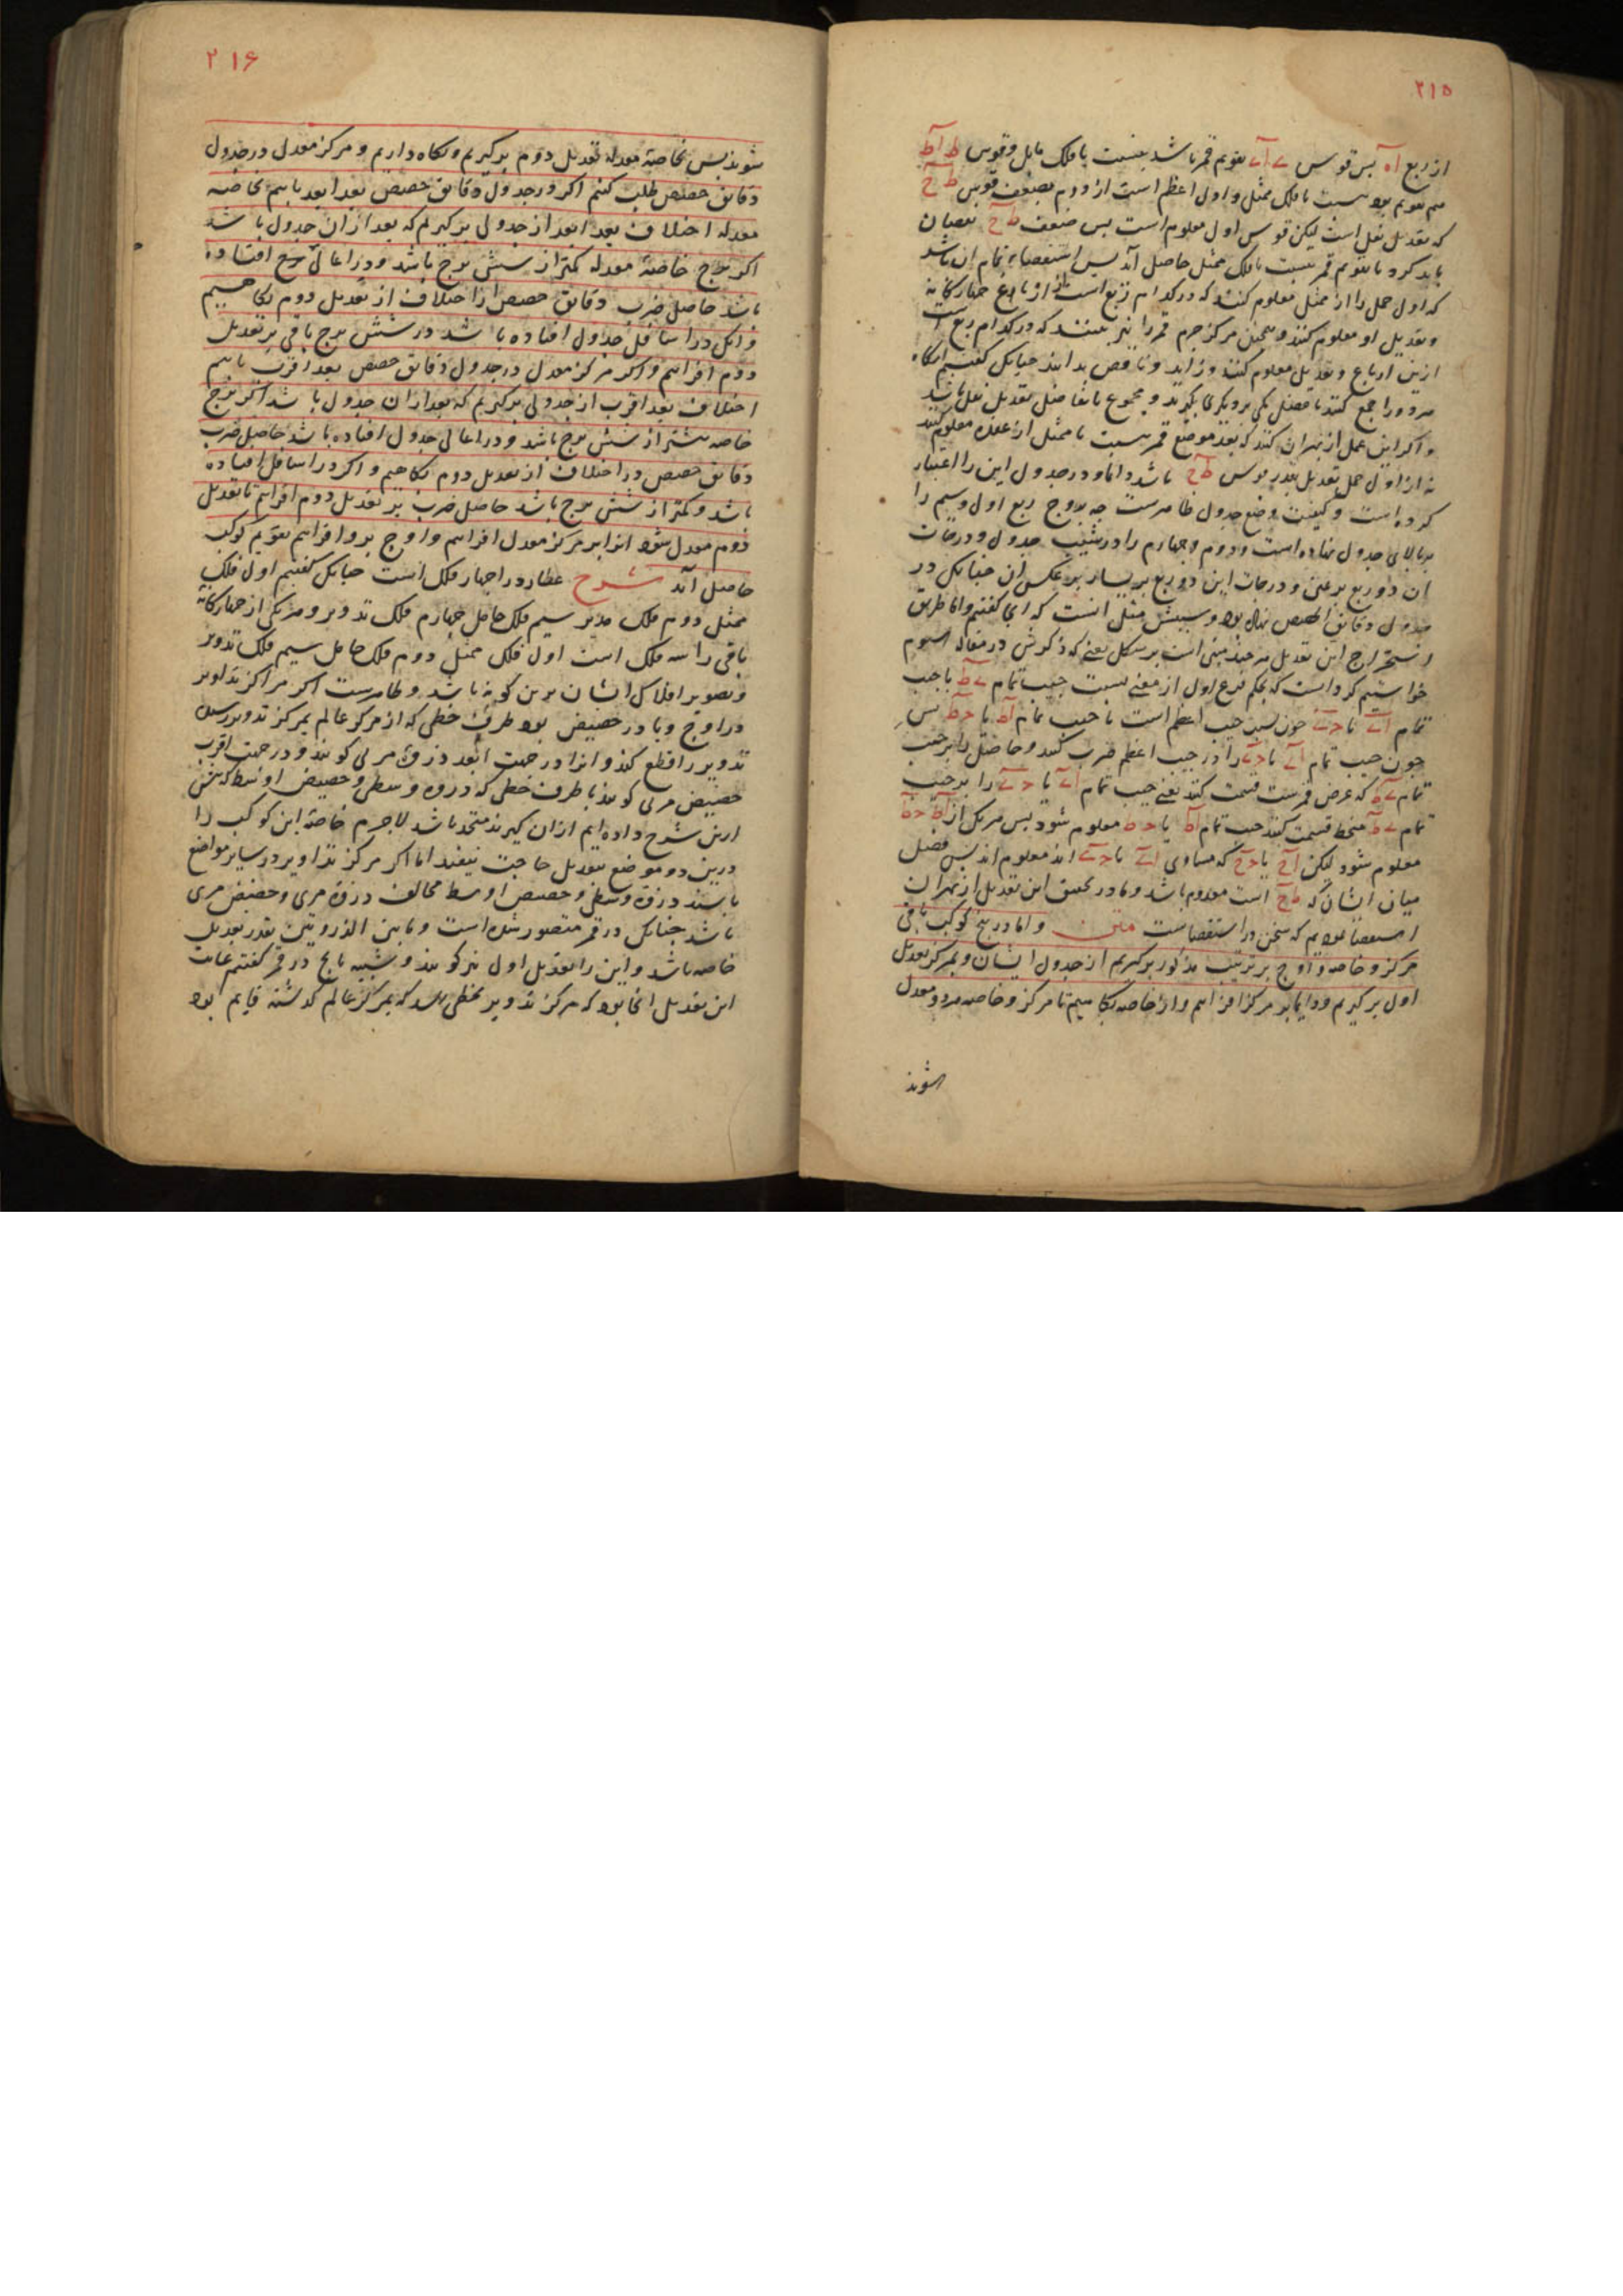 ۲۱۵
از ربع آه پس قوس ے آے تقویم قمر باشد بنسبت با فلک مایل و قوس ط آط
هم تقویم بود نسبت با فلک ممثل و اول اعظم است از دوم بضعف قوس ط ح
که تعدیل نقل است لیکن قوس اول معلوم است پس ضعف ط ح نقصان
باید کرد تا تقویم قمر نسبت با فلک ممثل حاصل آید پس استقصاء تمام آن باشد
که اول حمل را از ممثل معلوم کنند که در کدام ربع است از ارباع چهارگانه
و تعدیل او معلوم کنند و همچنین مرکز جرم قمر را نیز ببینند که در کدام ربع است
ازین ارباع و تعدیل معلوم کنند و زاید و ناقص بدانند چنانک گفتیم آنگاه
هر دو را جمع کنند یا فضل یکی بر دیگری بگیرند و مجموع یا تفاضل تعدیل نقل باشد
و اگر این عمل از بهر آن کنند که بعد موضع قمر نسبت با ممثل از عقده معلوم کنند
نه از اول حمل تعدیل بقدر قوس ط ح باشد و اما در جدول این را اعتبار
کرده است و کیفیت وضع جدول ظاهرست چه بروج ربع اول و سیم را
بر بالای جدول نهاده است و دوم و چهارم را در شیب جدول و درجات
آن دو ربع بر یمین و درجات این دو ربع بر یسار بر عکس آن چنانک در
جدول دقایق الحصص نهاده بود و سببش مثل آنست که آنجا گفتیم و اما طریق
استخراج این تعدیل هر چند مبنی است بر شکل مغنی که ذکرش در مقاله سیوم
خواستیم کرد آنست که بحکم فرع اول از مغنی نسبت جیب تمام ے ط با جیب
تمام آے یا حے چون نسبت جیب اعظم است با جیب تمام آط یا حط پس
چون جیب تمام آے یا حے را در جیب اعظم ضرب کنند و حاصل را بر جیب
تمام ے ط که عرض قمرست قسمت کنند یعنی جیب تمام آے یا حے را بر جیب
تمام ے ط منحط قسمت کنند جیب تمام آط یا حط معلوم شود پس هر یک از آط حط
معلوم شود لیکن آح یا حح که مساوی آے یا حے اند معلوم اند پس فضل
میان ایشان که ط ح است معلوم باشد و ما در تحقیق این تعدیل از بهر آن
استقصا نمودیم که سخن در استقصاست متن و اما در پنج کوکب باقی
مرکز و خاصه و اوج بر ترتیب مذکور برگیریم از جدول ایشان و بمرکز تعدیل
اول برگیریم و دایما بر مرکز افزاییم و از خاصه بکاهیم تا مرکز و خاصه هر دو معدل
شوند
۲۱۶
شوند پس بخاصهٔ معدله تعدیل دوم برگیریم و نگاه داریم و مرکز معدل در جدول
دقایق حصص طلب کنیم اگر در جدول دقایق حصص بعد ابعد یابیم بخاصه
معدله اختلاف بعد ابعد از جدولی برگیریم که بعد از آن جدول باشد
اگر برج خاصهٔ معدله کمتر از شش برج باشد و در اعالی برج افتاده
باشد حاصل ضرب دقایق حصص را اختلاف از تعدیل دوم بکاهیم
و آنک در اسافل جدول افتاده باشد در شش برج باقی بر تعدیل
دوم افزاییم و اگر مرکز معدل در جدول دقایق حصص بعد اقرب یابیم
اختلاف بعد اقرب از جدولی برگیریم که بعد از آن جدول باشد اگر برج
خاصه بیشتر از شش برج باشد و در اعالی جدول افتاده باشد حاصل ضرب
دقایق حصص در اختلاف از تعدیل دوم بکاهیم و اگر در اسافل افتاده
باشد و کمتر از شش برج باشد حاصل ضرب بر تعدیل دوم افزاییم تا تعدیل
دوم معدل شود آنرا بر مرکز معدل افزاییم و اوج برو افزاییم تقویم کوکب
حاصل آید شرح عطارد را چهار فلک است چنانک گفتیم اول فلک
ممثل دوم فلک مدیر سیم فلک حامل چهارم فلک تدویر و هر یکی از چهارگانه
باقی را سه فلک است اول فلک ممثل دوم فلک حامل سیم فلک تدویر
و تصویر افلاک ایشان برین گونه باشد و ظاهرست اگر مراکز تداویر
در اوج و یا در حضیض بود طرف خطی که از مرکز عالم بمرکز تدویر رسد
تدویر را قطع کند و آنرا در جهت ابعد ذروهٔ مرئی گویند و در جهت اقرب
حضیض مرئی گویند با طرف خطی که ذروه وسطی و حضیض اوسط که پیش
ازین شرح داده ایم از آن گیرند متحد باشد لاجرم خاصهٔ این کوکب را
درین دو موضع بتعدیل حاجت نیفتد اما اگر مرکز تداویر در سایر مواضع
باشند ذروهٔ وسطی و حضیض اوسط مخالف ذروهٔ مرئی و حضیض مرئی
باشد چنانک در قمر متصور شده است و ما بین الذروتین بقدر تعدیل
خاصه باشد و این را تعدیل اول نیز گویند و شبیه بانچ در قمر گفتیم غایت
این تعدیل آنجا بود که مرکز تدویر بخطی رسد که بمرکز عالم گذشته قایم بود